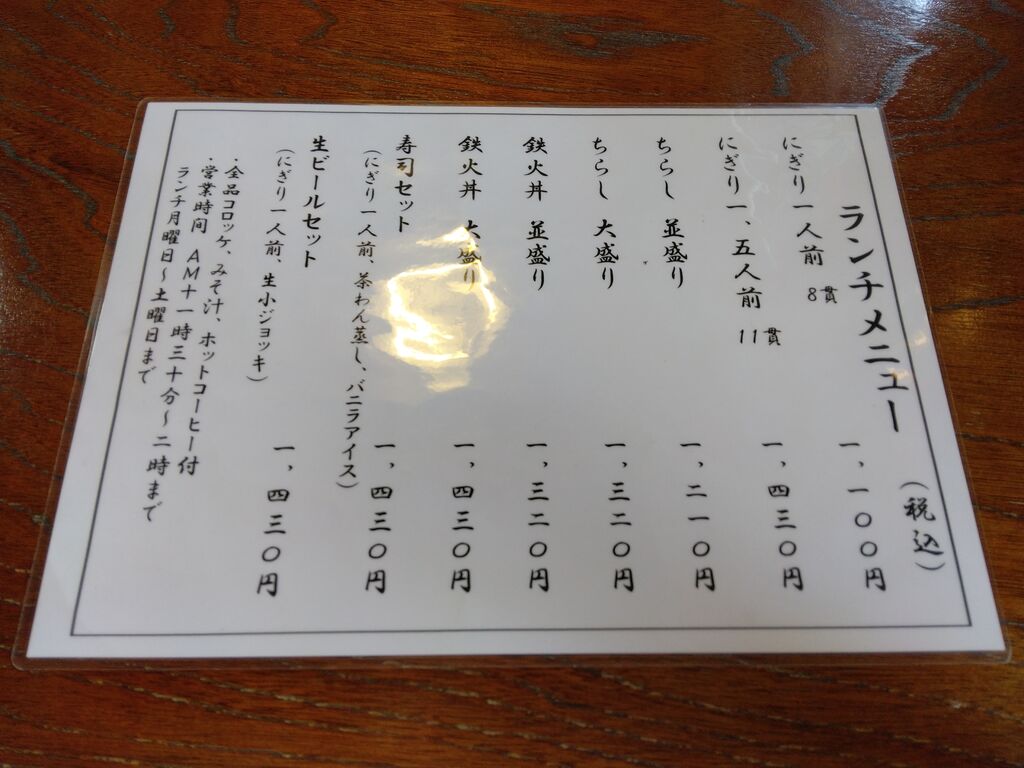 ランチメニュー (税込)
にぎり一人前 8貫 一,一〇〇円
にぎり一、五人前 11貫 一,四三〇円
ちらし 並盛り 一,二一〇円
ちらし 大盛り 一,三二〇円
鉄火丼 並盛り 一,三二〇円
鉄火丼 大盛り 一,四三〇円
寿司セット 一,四三〇円
(にぎり一人前、茶わん蒸し、バニラアイス)
生ビールセット 一,四三〇円
(にぎり一人前、生小ジョッキ)
・全品コロッケ、みそ汁、ホットコーヒー付
・営業時間 AM十一時三十分～二時まで
ランチ月曜日～土曜日まで